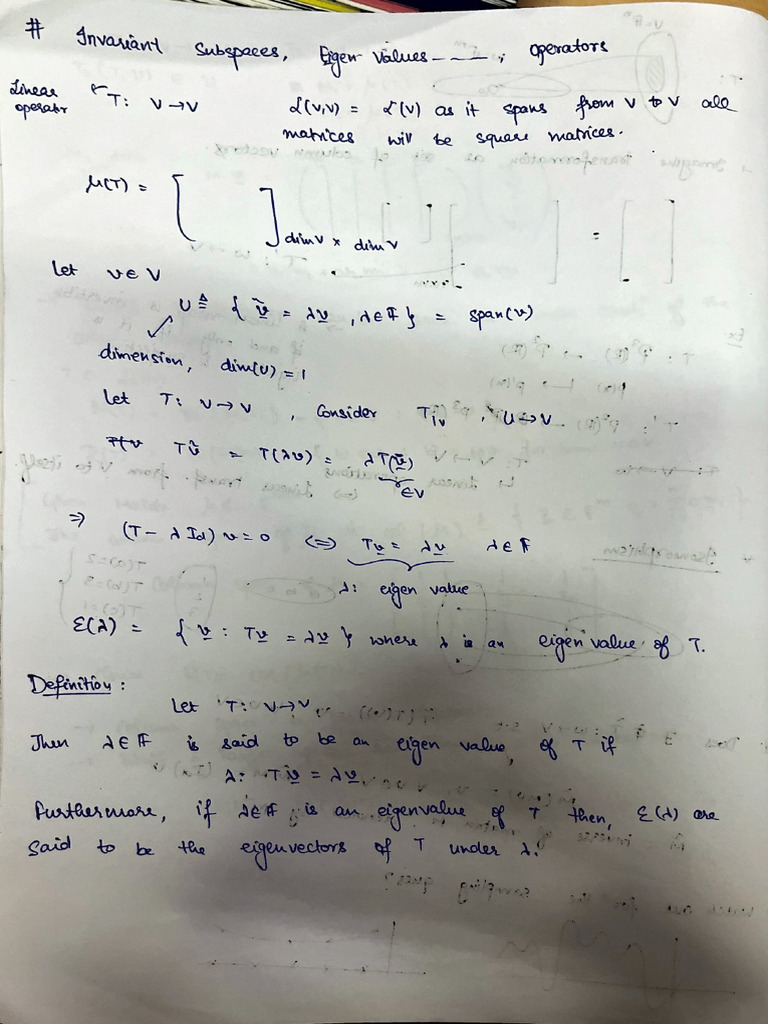 # Invariant Subspaces, Eigen Values - - - - , operators
Linear operator T: V → V    𝓛(V,V) = 𝓛(V) as it spans from V to V all
matrices will be square matrices.
μ(T) = [ ] dim V × dim V
Let v ∈ V
U ≜ { ṽ = λv , λ ∈ 𝔽 } = span(v)
dimension, dim(U) = 1
Let T: V → V , Consider T|ᵥ , U → V
Tṽ = T(λv) = λT(v) ∈ V
⇒ (T - λ Id) v = 0 ⇔ Tv = λv λ ∈ 𝔽
λ: eigen value
ℰ(λ) = { v : Tv = λv } where λ is an eigen value of T.
Definition :
Let T: V → V
Then λ ∈ 𝔽 is said to be an eigen value, of T if
λ: Tv = λv
furthermore, if λ ∈ 𝔽 is an eigenvalue of T then, ℰ(λ) are
said to be the eigenvectors of T under λ.